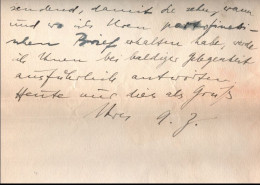 sendend, damit Sie sehen, wann
und wo ich Ihren
schen Brief erhalten habe, werde
ich Ihnen bei baldiger Gelegenheit
ausführlich antworten.
Heute nur dies als Gruß
Ihres A. J.